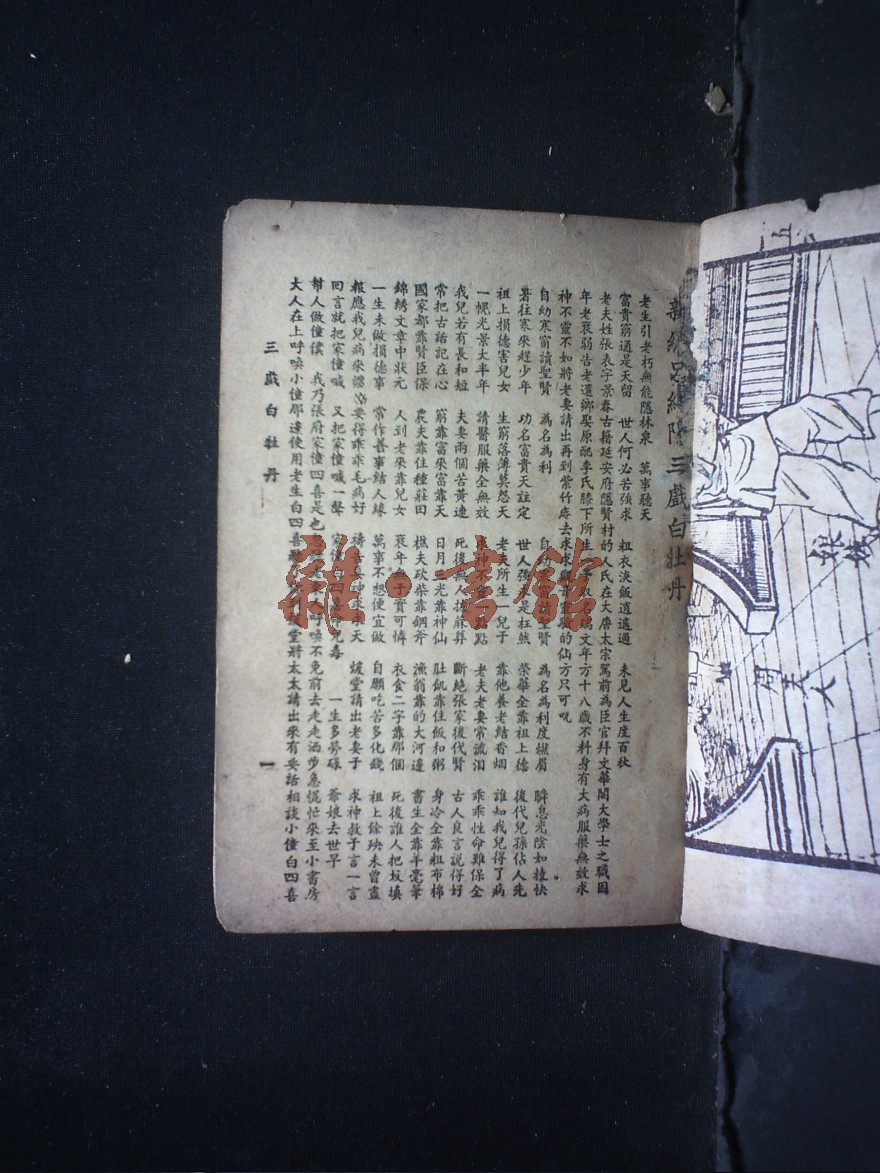 三戲白牡丹
老生引老朽無能隱林泉 萬事聽天
富貴窮通是天留 世人何必苦強求 粗衣淡飯逍遙過 未見人生度百秋
老夫姓張表字景春古籍延安府隱賢村的人氏在大唐太宗駕前為臣官拜文華閣大學士之職因
年老衰弱告老還鄉娶原配李氏膝下所生一子 文年方十八歲不料身有大病服藥無效求
神不靈不如將老妻請出再到紫竹 去求求觀音 的仙方只可呪
自幼寒窗讀聖賢 為名為利 自幼 聖賢 為名為利度 眉 瞬息光陰如撞快
暑往寒來趕少年 功名富貴天註定 世人強 是枉然 榮華全靠祖上德 後代兒孫佔人先
祖上損德害兒女 生窮落薄莫怨天 老夫所生一兒子 靠他養老結香烟 誰知我兒得了病
一幌光景大半年 請醫服藥全無效 求神不 點 老夫老妻常流泪 乖乖性命難保全
我兒若有長和短 夫妻兩個苦黃連 死後無人 麻算 斷絕張家後代賢 古人良言說得好
常把古話記在心 窮靠富來富靠天 日月三光靠神仙 肚飢靠住飯和粥 身冷全靠粗布棉
國家都靠賢臣保 農夫靠住種莊田 樵夫砍柴靠鋼斧 漁翁靠的大河邊 書生全靠羊毫筆
錦綉文章中狀元 人到老來靠兒女 衰年無子實可憐 衣食二字靠那個 死後誰人把坟填
一生未做損德事 常作善事結人緣 萬事不想便宜做 自願吃苦多化錢 祖上餘殃未曾盡
報應我兒病來纏 要得乖乖毛病好 禱告真神求求天 煖堂請出老妻子 求神救子言一言
回言就把家僮喊 又把家僮喊一聲 家僮白四喜 兒毒 一生多勞碌 爺娘去世早
幇人做僮僕 我乃張府家僮四喜是也 人呼喚不免前去走走洒步急慌忙來至小書房
大人在上呼喚小僮那邊使用老生白四喜 堂將太太請出來有要話相談小僮白四喜
三戲白牡丹
一
雜·書館
人